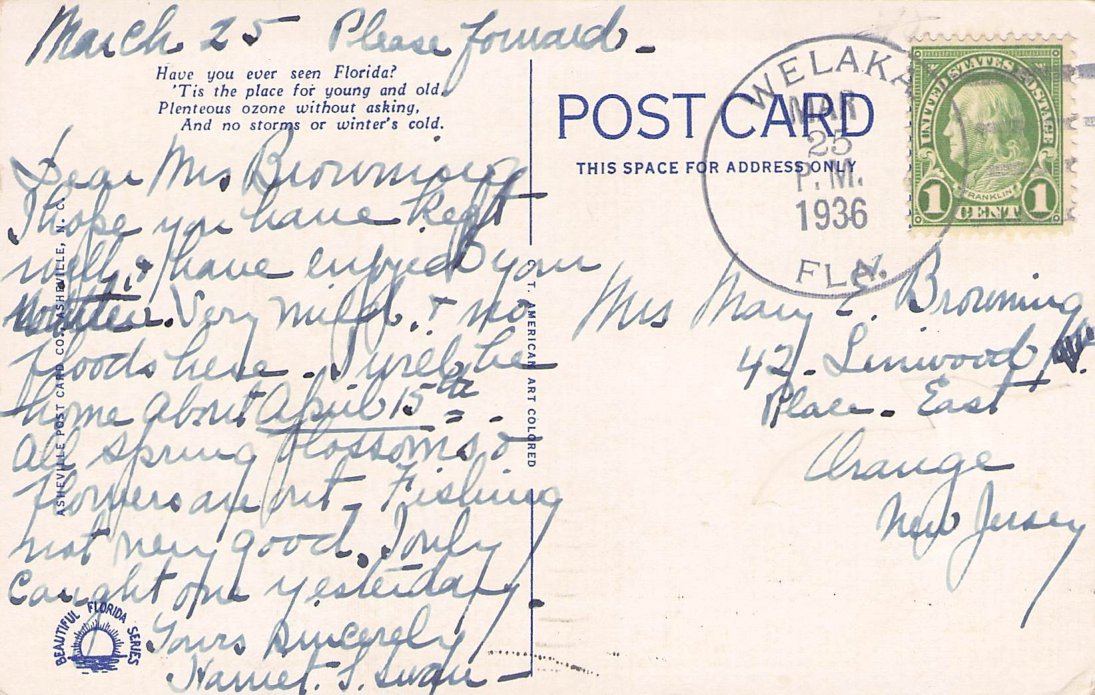 March 25 Please forward -
Have you ever seen Florida?
'Tis the place for young and old,
Plenteous ozone without asking,
And no storms or winter's cold.
Dear Mrs. Browning
I hope you have kept
well, & have enjoyed your
Very mild, & no
floods here. I will be
home about April 15th.
All spring blossoms &
flowers are out. Fishing
not very good. I only
caught one yesterday.
Yours sincerely
Harriet. S. Swan -
POST CARD
THIS SPACE FOR ADDRESS ONLY
WELAKA
MAR
25
P.M.
1936
FLA.
UNITED STATES POSTAGE
FRANKLIN
1 CENT 1
Mrs Mary E. Browning
42 - Linwood
Place - East
Orange
New Jersey
ASHEVILLE POST CARD CO., ASHEVILLE, N. C.
C. T. AMERICAN ART COLORED
BEAUTIFUL FLORIDA SERIES